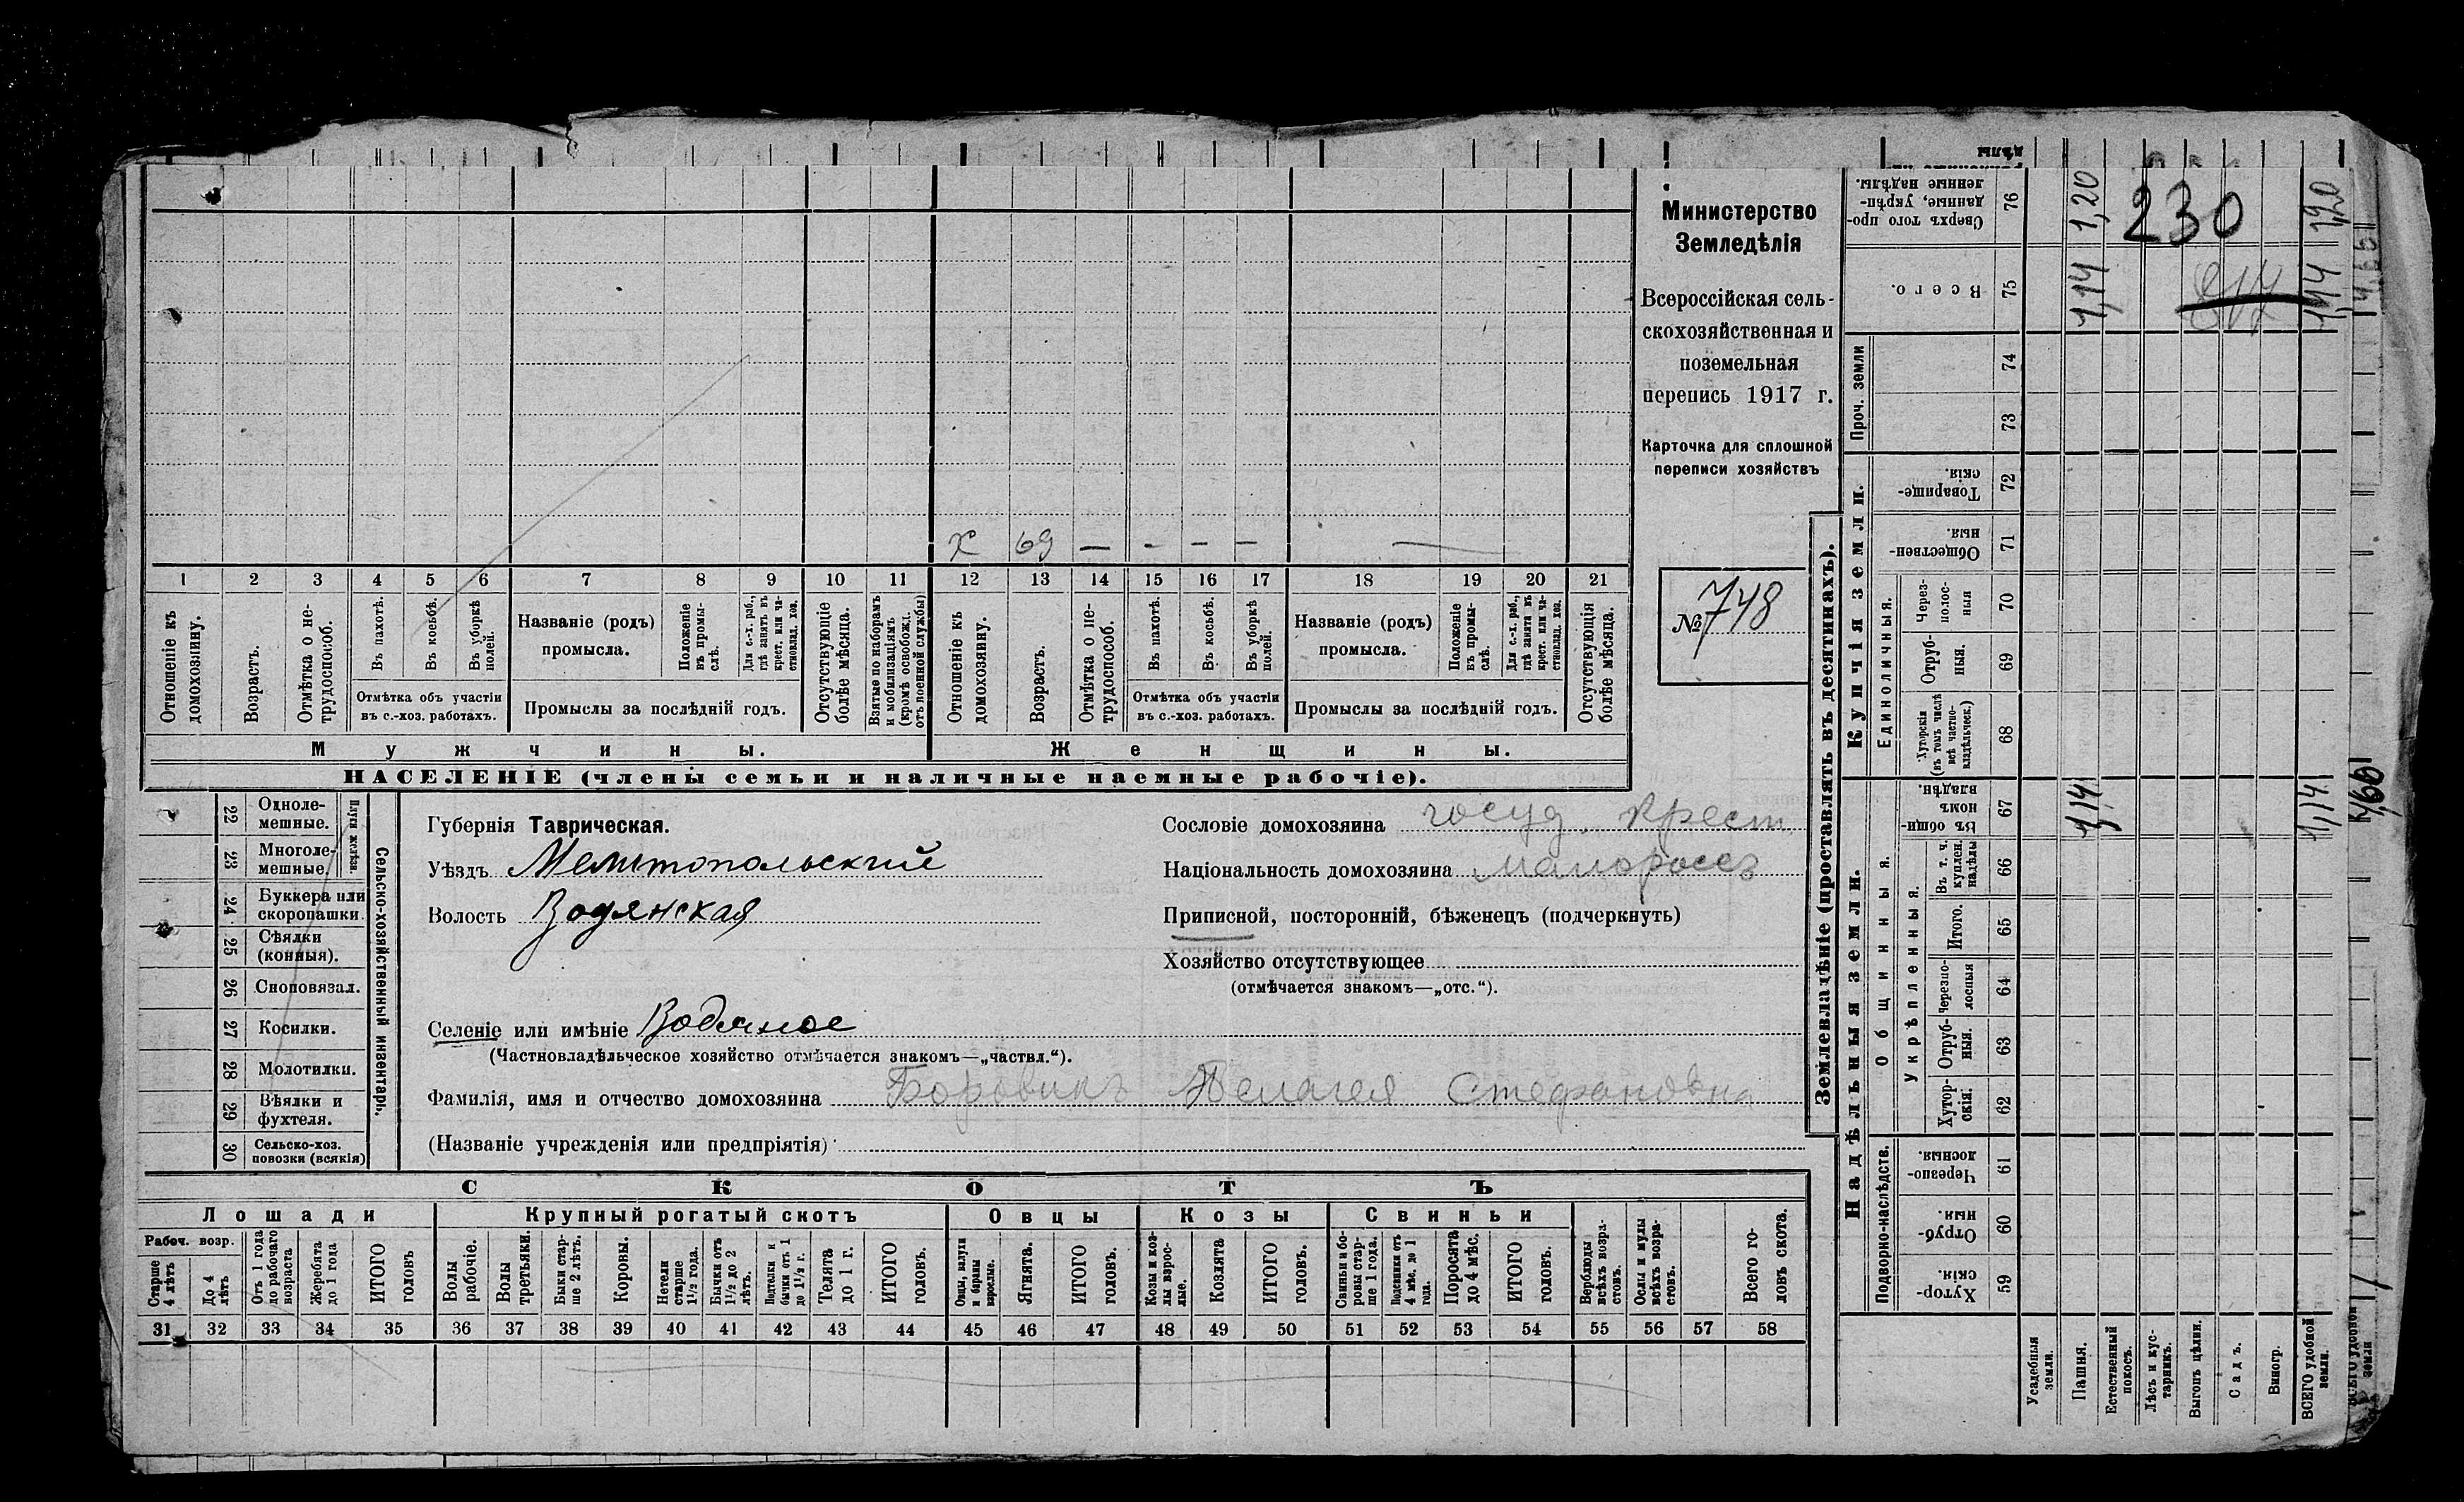 х 69 — — — — —
1 2 3 4 5 6 7 8 9 10 11 12 13 14 15 16 17 18 19 20 21
Отношеніе къ домохозяину.
Возрастъ.
Отмѣтка о не-
трудоспособ.
Въ пахотѣ.
Въ косьбѣ.
Въ уборкѣ
полей.
Отмѣтка объ участіи
въ с.-хоз. работахъ.
Названіе (родъ)
промысла.
Положеніе
въ промы-
слѣ.
Для с.-х. раб.,
гдѣ занятъ въ
крест. или ча-
стновлад. хоз.
Промыслы за послѣдній годъ.
Отсутствующіе
болѣе мѣсяца.
Взятые по наборамъ
и мобилизаціямъ
(кромѣ освобожд.
отъ военной службы)
Отношеніе къ
домохозяину.
Возрастъ.
Отмѣтка о не-
трудоспособ.
Въ пахотѣ.
Въ косьбѣ.
Въ уборкѣ
полей.
Отмѣтка объ участіи
въ с.-хоз. работахъ.
Названіе (родъ)
промысла.
Положеніе
въ промы-
слѣ.
Для с.-х. раб.,
гдѣ занята въ
крест. или ча-
стновлад. хоз.
Промыслы за послѣдній годъ.
Отсутствующія
болѣе мѣсяца.
Мужчины.
Женщины.
НАСЕЛЕНІЕ (члены семьи и наличные наемные рабочіе).
Министерство
Земледѣлія
Всероссійская сель-
скохозяйственная и
поземельная
перепись 1917 г.
Карточка для сплошной
переписи хозяйствъ
№ 748
22 Одноле-
мешные.
23 Многоле-
мешные.
Плуги желѣзн.
24 Буккера или
скоропашки.
25 Сѣялки
(конныя).
26 Сноповязал.
27 Косилки.
28 Молотилки.
29 Вѣялки и
фухтеля.
30 Сельско-хоз.
повозки (всякія)
Сельско-хозяйственный инвентарь.
Губернія Таврическая.
Уѣздъ Мелитопольскій
Волость Водянская
Селеніе или имѣніе Водяное
(Частновладѣльческое хозяйство отмѣчается знакомъ—„частвл.“).
Фамилія, имя и отчество домохозяина Боровикъ Пелагея Стефановна
(Названіе учрежденія или предпріятія)
Сословіе домохозяина госуд. крест.
Національность домохозяина малороссъ
Приписной, посторонній, бѣженецъ (подчеркнуть)
Хозяйство отсутствующее
(отмѣчается знакомъ—„отс.“).
СКОТЪ
Лошади
Рабоч. возр.
Старше
4 лѣтъ
До 4
лѣтъ
Отъ 1 года
до рабочаго
возраста
Жеребята
до 1 года
ИТОГО
головъ
Крупный рогатый скотъ
Волы
рабочіе.
Волы
третьяки.
Быки стар-
ше 2 лѣтъ.
Коровы.
Нетели
старше
1½ года.
Бычки отъ
1½ до 2
лѣтъ.
Подтелки и
бычки отъ 1
до 1½ г.
Телята
до 1 г.
ИТОГО
головъ.
Овцы
Овцы, валухи
и бараны
взрослые.
Ягнята.
ИТОГО
головъ.
Козы
Козы и коз-
лы взрос-
лые.
Козлята
ИТОГО
головъ.
Свиньи
Свиньи и бо-
ровы стар-
ше 1 года.
Подсвинки отъ
4 мѣс. до 1
года.
Поросята
до 4 мѣс.
ИТОГО
головъ.
Верблюды
всѣхъ возра-
стовъ.
Ослы и мулы
всѣхъ возра-
стовъ.
Всего го-
ловъ скота.
31 32 33 34 35 36 37 38 39 40 41 42 43 44 45 46 47 48 49 50 51 52 53 54 55 56 57 58
Землевладѣніе (проставлять въ десятинахъ).
Надѣльныя земли.
Подворно-наслѣдств.
Хутор-
скія. 59
Отруб-
ныя. 60
Черезпо-
лосныя 61
Общинныя.
Укрѣпленныя.
Хутор-
скія. 62
Отруб-
ныя. 63
Черезпо-
лосныя 64
Итого. 65
Въ т. ч.
куплен.
надѣлы 66
Въ общин-
номъ
владѣн. 67
1,14
1,14
Купчія земли.
Единоличныя.
Хуторскія
(въ томъ числѣ
всѣ частно-
владѣльческ.) 68
Отруб-
ныя. 69
Через-
полос-
ныя 70
Обществен-
ныя 71
Товарище-
скія. 72
Проч. земли
73 74
Всего. 75
1,14
1,14
Сверхъ того про-
данные, укрѣп-
ленные надѣлы. 76
1,20
230
1,20
Усадебныя
земли.
Пашня.
Естественный
покосъ.
Лѣсъ и кус-
тарникъ.
Выгонъ цѣлин.
Садъ.
Виногр.
ВСЕГО удобной
земли.
ВСЕГО удобной
земли
4,66
4,66